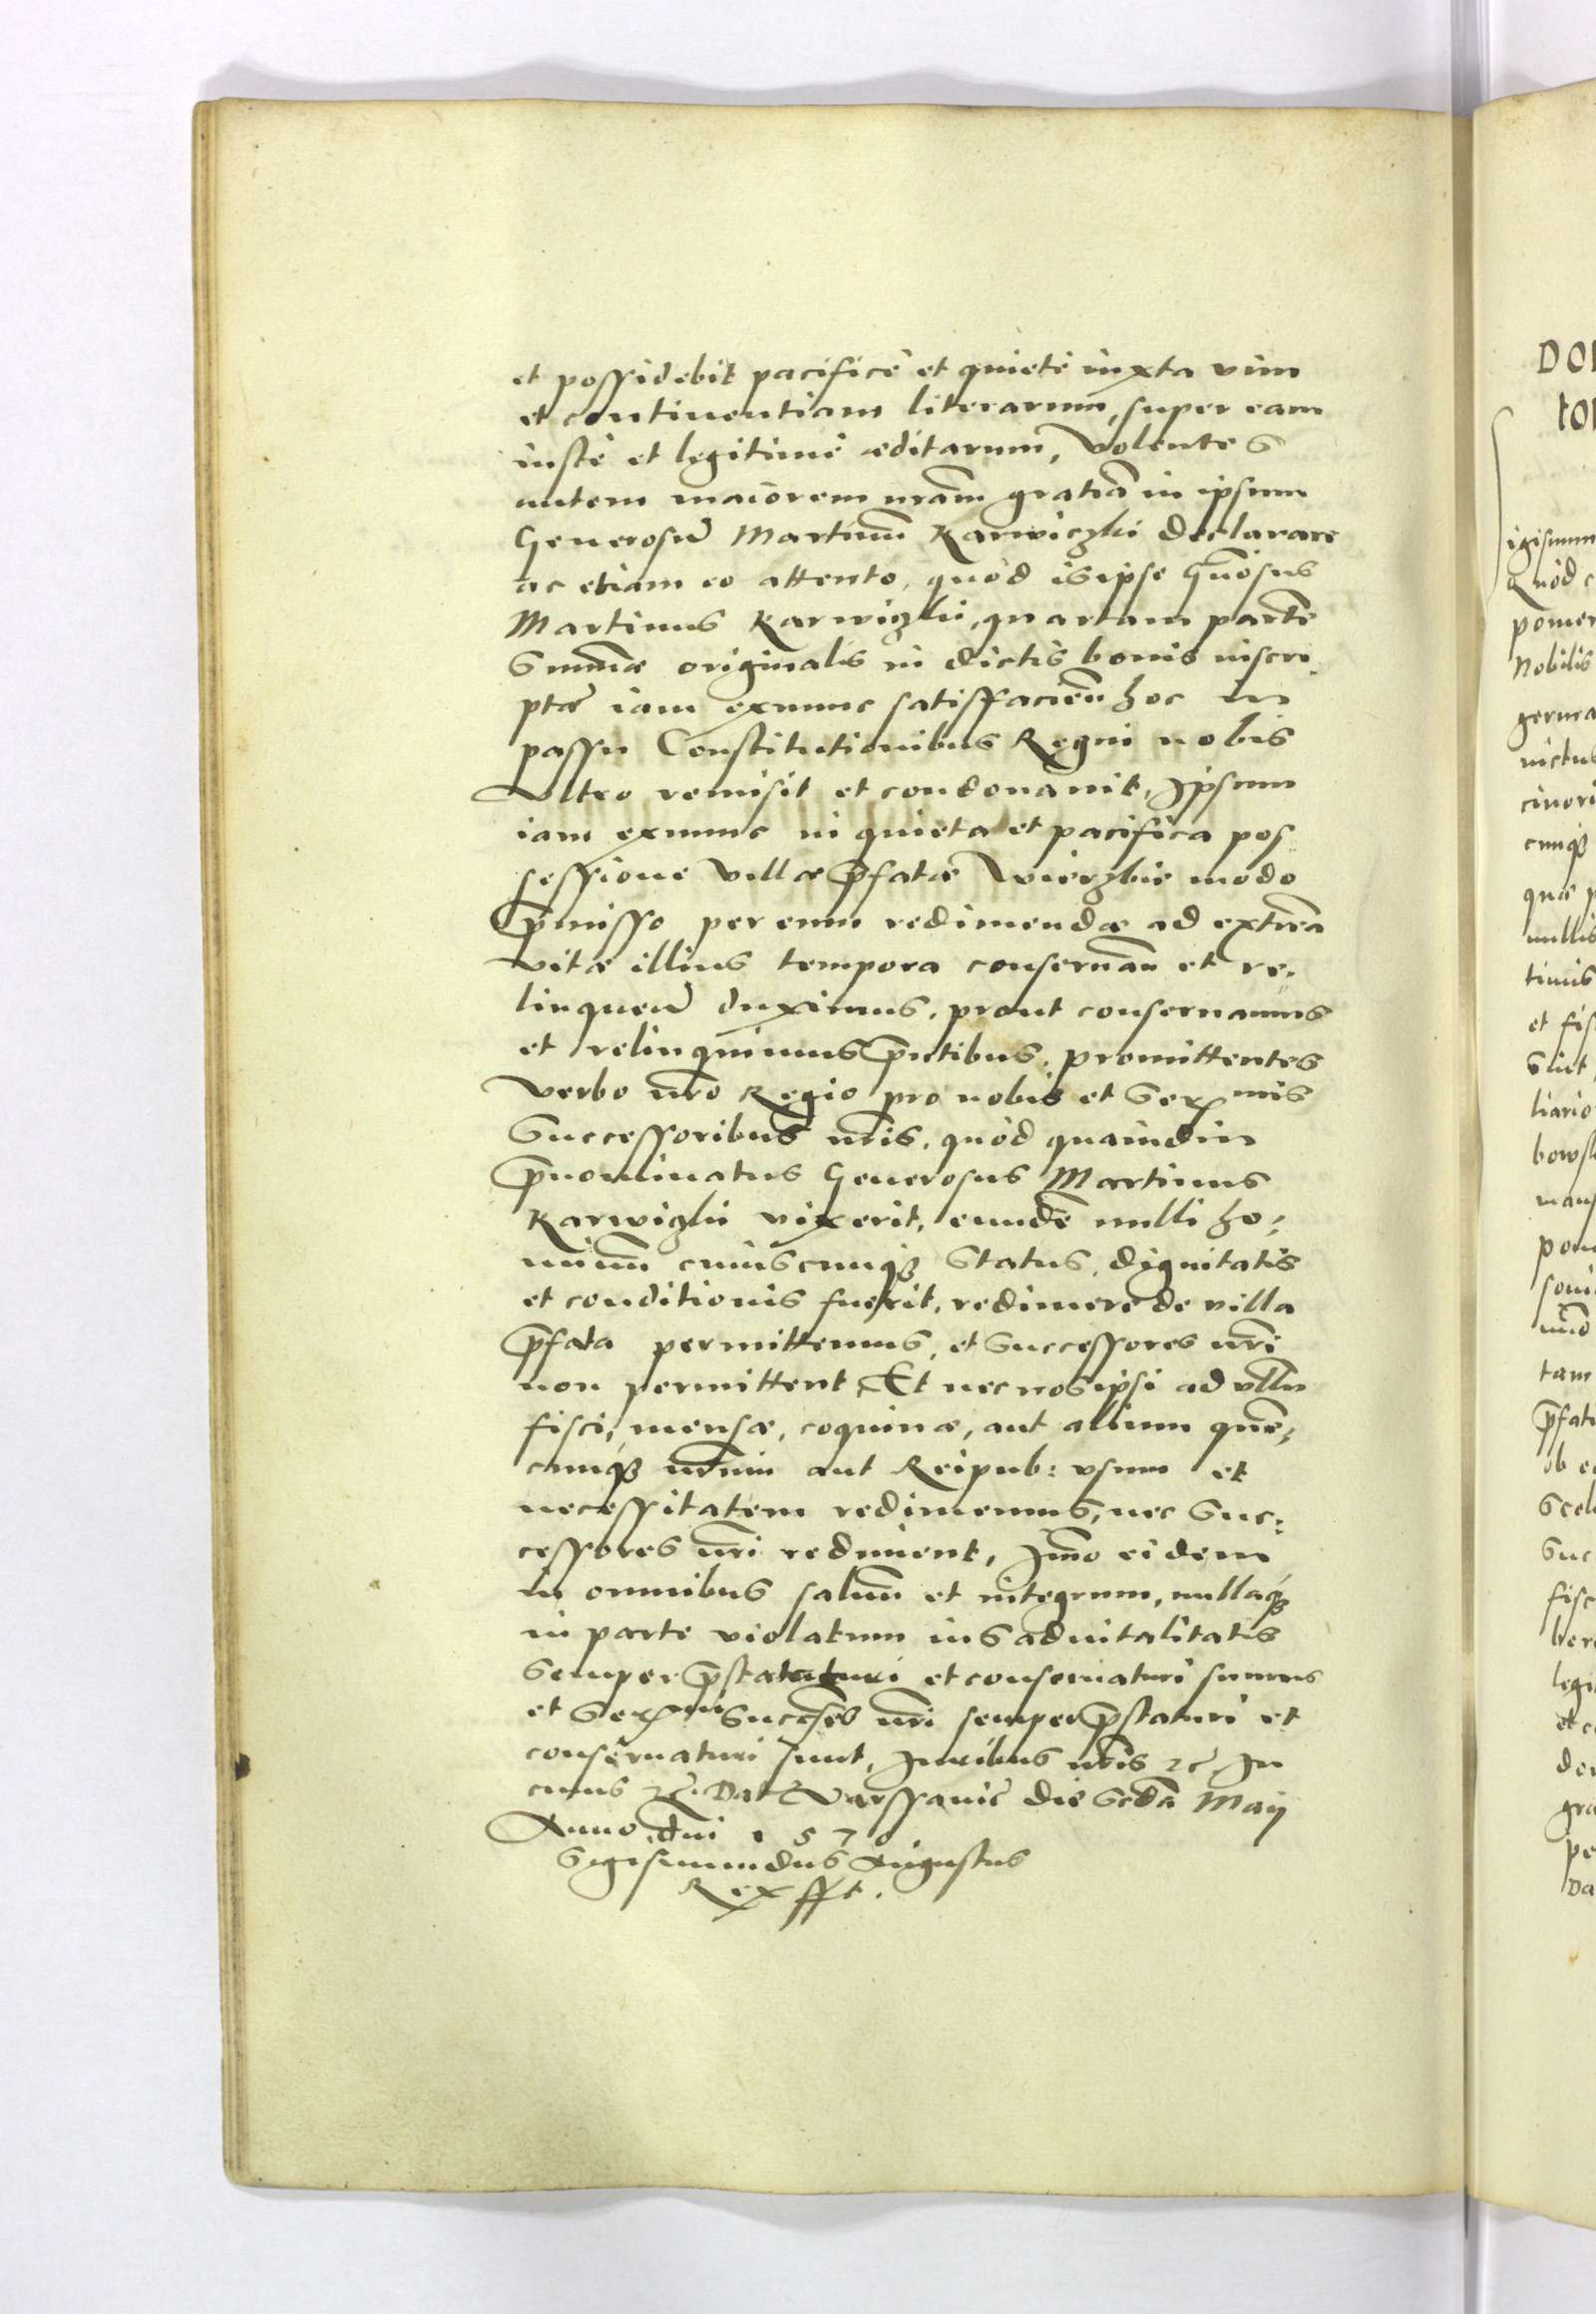 et possidebit pacificè et quietè iuxta vim
et continentiam literarum, super eam
iustè et legitimè æditarum, Volentes
autem maiorem nr̃am gratiã in ipsum
Generosũ Martinũ Karwiczki declarare
ac etiam eo attento, quòd is ipse Gñosus
Martinus Karwiczki, quartam partẽ
Summæ originalis in dictis bonis inscri-
ptæ iam exnunc satisfacieñ hoc in
passu Constitutionibus Regni nobis
Vltro remisit et condonauit, Ipsum
iam exnunc in quieta et pacifica pos
sessione Villæ p̃fatæ Wierzbie modo
p̃misso per eum redimendæ ad extrema
vitæ illius tempora conseruañ et re-
linqueñ duximus, prout conseruamus
et relinquimus p̃ntibus, promittentes
Verbo nr̃o Regio pro nobis et Serenmis
Successoribus nr̃is, quòd quamdiu
p̃nominatus Generosus Martinus
Karwiczki vixerit, eundẽ nulli ho-
minũ cuiuscunqȝ Status, dignitatis
et conditionis fuerit, redimere de villa
p̃fata permittemus, et Successores nr̃i
non permittent, Et nec nos ipsi ad vllũ
fisci, mensæ, coquinæ, aut alium quẽ-
cunqȝ nr̃um aut Reipub: vsum et
necessitatem redimemus, nec Suc:
cessores nr̃i rediment, Im̃o eidem
in omnibus saluũ et integrum, nullaqȝ
in parte violatum ius aduitalitatis
Semper p̃staturi et conseruaturi sumus
et Serenmi Success̃es nr̃i semper p̃staturi et
conseruaturi sunt, Iuribus nr̃is ꝛc̃ In
cuius ꝛc̃. Dat̃ Varssauie die Scdã Maij
Anno dñi 1570
Sigismundus Augustus
Rex sst.
DO
to
igismun
Quòd c
pomer
Nobilis
germa
uictus
cinori
cunqȝ
quæ p
nullis
timis
et fis
Siut
liario
bowsk
mans
pom
soui
tam
p̃fat
ob e
Scel
Suc
fisc
ber
legi
et c
de
gra
pe
Da